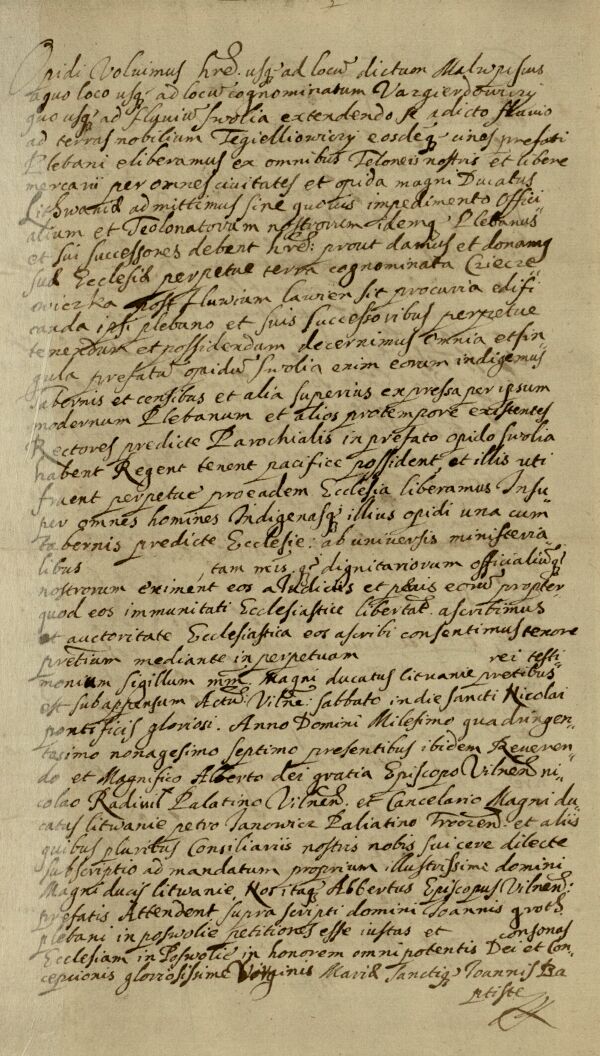 2
Opidi Volumus hrē. usq; ad locū dictum Malupisus
a quo loco usq; ad locū cognominatum Vargierdowiczy
quo usq; ad flquiū Swolia extendendo se a dicto fluuio
ad terras nobilium Tegiellowiczy eosdeq; cines prefati
Plebani eliberamus ex omnibus Teloneis nostris et libere
mercarii per omnes ciuitates et opida magni Ducatus
Lithwaniæ admittimus sine quouis impedimento offici
alium et Teolonatorum nostrorum idemq; Plebanus
et sui successores debent hrē: prout damus et donamq
suæ Ecclesiæ perpetue terra cognominata Cziecze
owiczka post fluuium laurien sit procuria edifi
canda ipsi plebano et suis successoribus perpetue
tenendum et possidendum decernimus omnia et sin
gula prefatū opidū Swolia enim eorum indigemus
tabernis et censibus et alia superius expressa per ipsum
modernum Plebanum et alios protempore existentes
Rectores predicte Parochialis in prefato opido Swolia
habent Regent tenent pacifice possident et illis uti
fruent perpetue pro eadem Ecclesia liberamus Insu
per omnes homines Indigenasq; illius opidi una cum
tabernis predicte Ecclesie: ab uniuersis ministeria
libus tam mis. q; dignitariorum officialiūq;
nostrorum eximent eos a Iudiciis et penis eorū propter
quod eos immunitati Ecclesiastice libertat. ascribimus
et auctoritate Ecclesiastica eos ascribi consentimus tenore
pretium mediante in perpetuam rei testi
monium sigillum nrm Magni ducatus lituanie pretibus
est subappensum Actū Vilnē: sabbato in die sancti Nicolai
pontificis gloriosi. Anno Domini Milesimo quadringen
tesimo nonagesimo septimo presentibus ibidem Reueren
do et Magnifico Alberto dei gratia Episcopo Vilnen ni
colao Radiuil Palatino Vilnen. et Cancelario Magni du
catus lituanie petro Ianowicz Paliatino Troozen. et aliis
quibus pluribus Consiliariis nostris nobis sincere dilecte
subscriptio ad mandatum proprium illustrissime domini
Magni ducis lituanie, Nos itaq; Albertus Episcopus Vilnen:
prefatis Attendent supra scripti domini Ioannis groth
plebani in poswolie petitiones esse iustas et consonas
Ecclesiam in Poswolie in honorem omnipotentis Dei et Con
cepcionis gloriosissime Virginis Mariæ Sanctiq; Ioannis Ba
ptiste